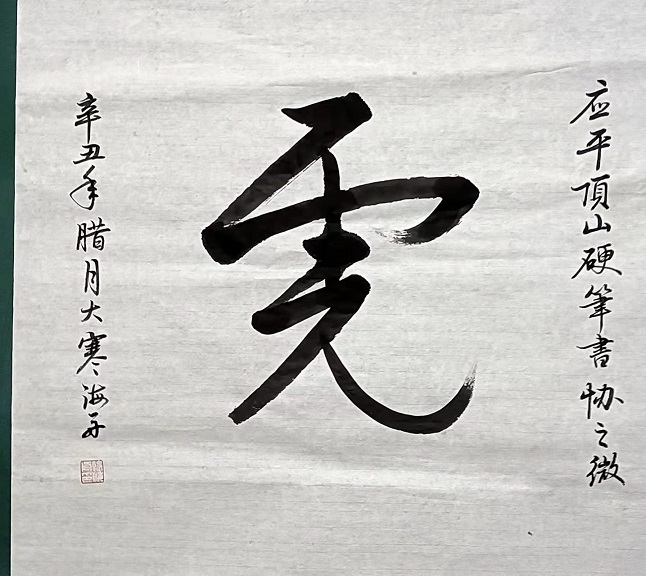 应平頂山硬筆書协之徵
虎
辛丑年腊月大寒海